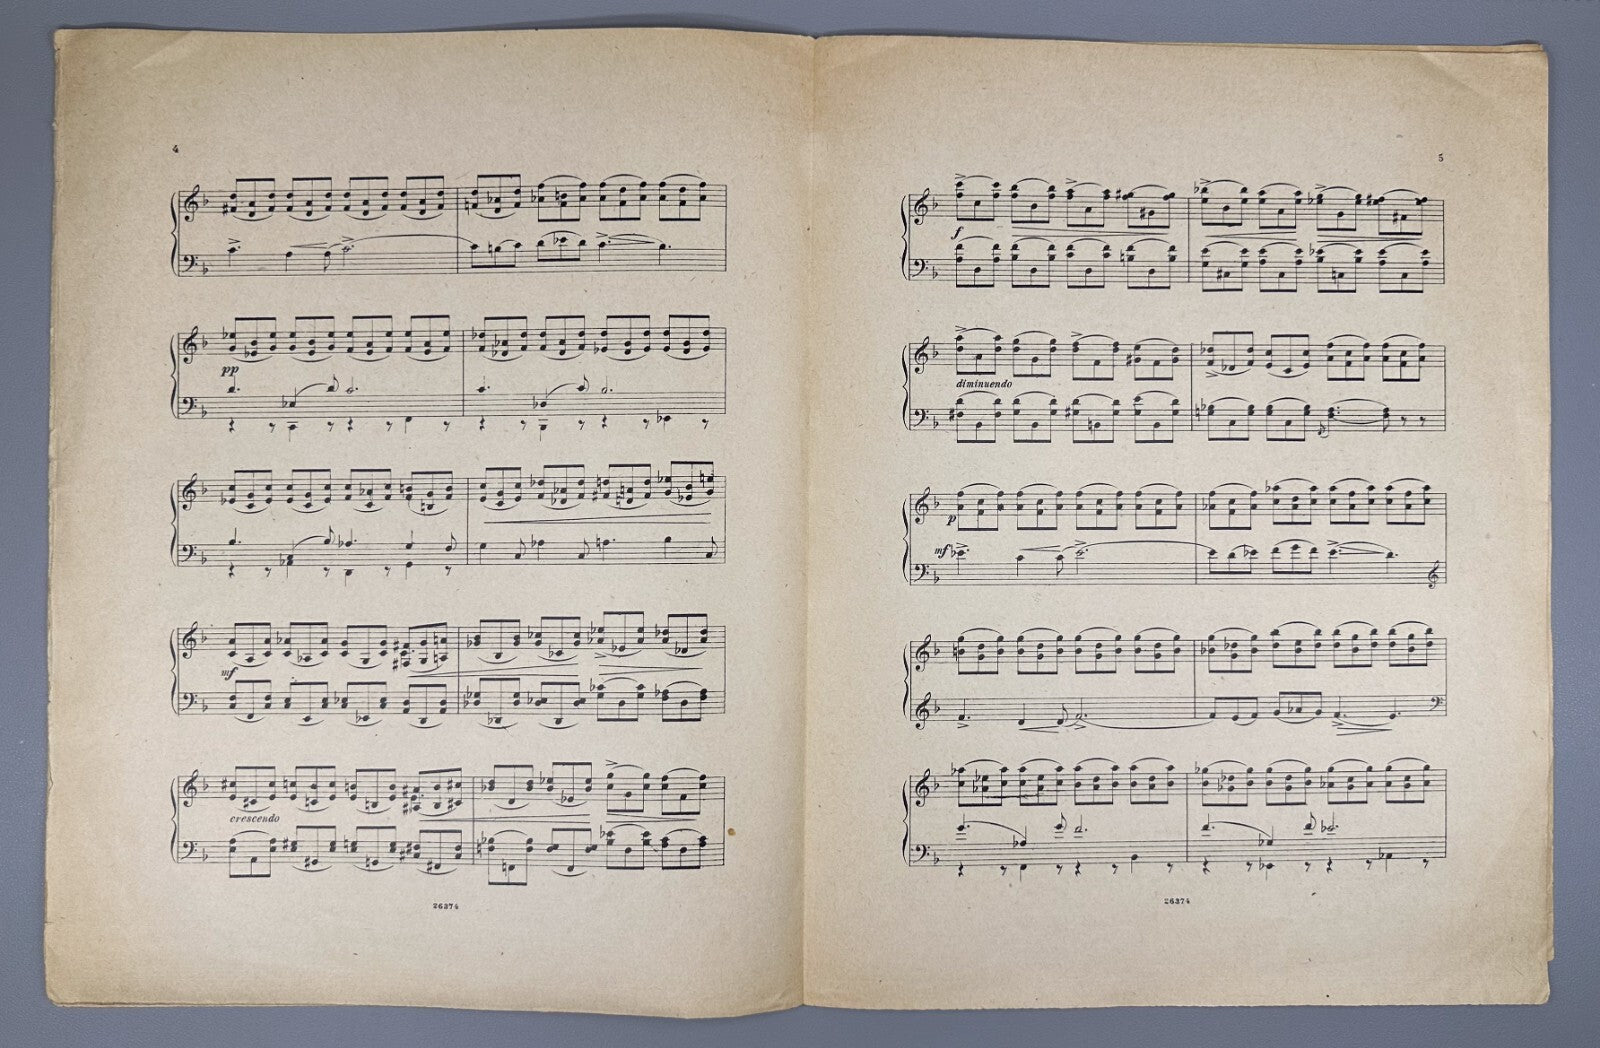 4
pp
mf
crescendo
26374
5
f
diminuendo
p
mf
26374